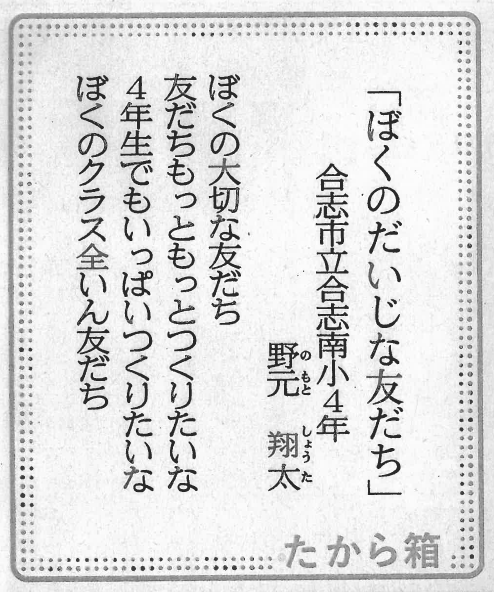 「ぼくのだいじな友だち」
合志市立合志南小4年
野元 翔太
のもと しょうた
ぼくの大切な友だち
友だちもっともっとつくりたいな
4年生でもいっぱいつくりたいな
ぼくのクラス全いん友だち
たから箱